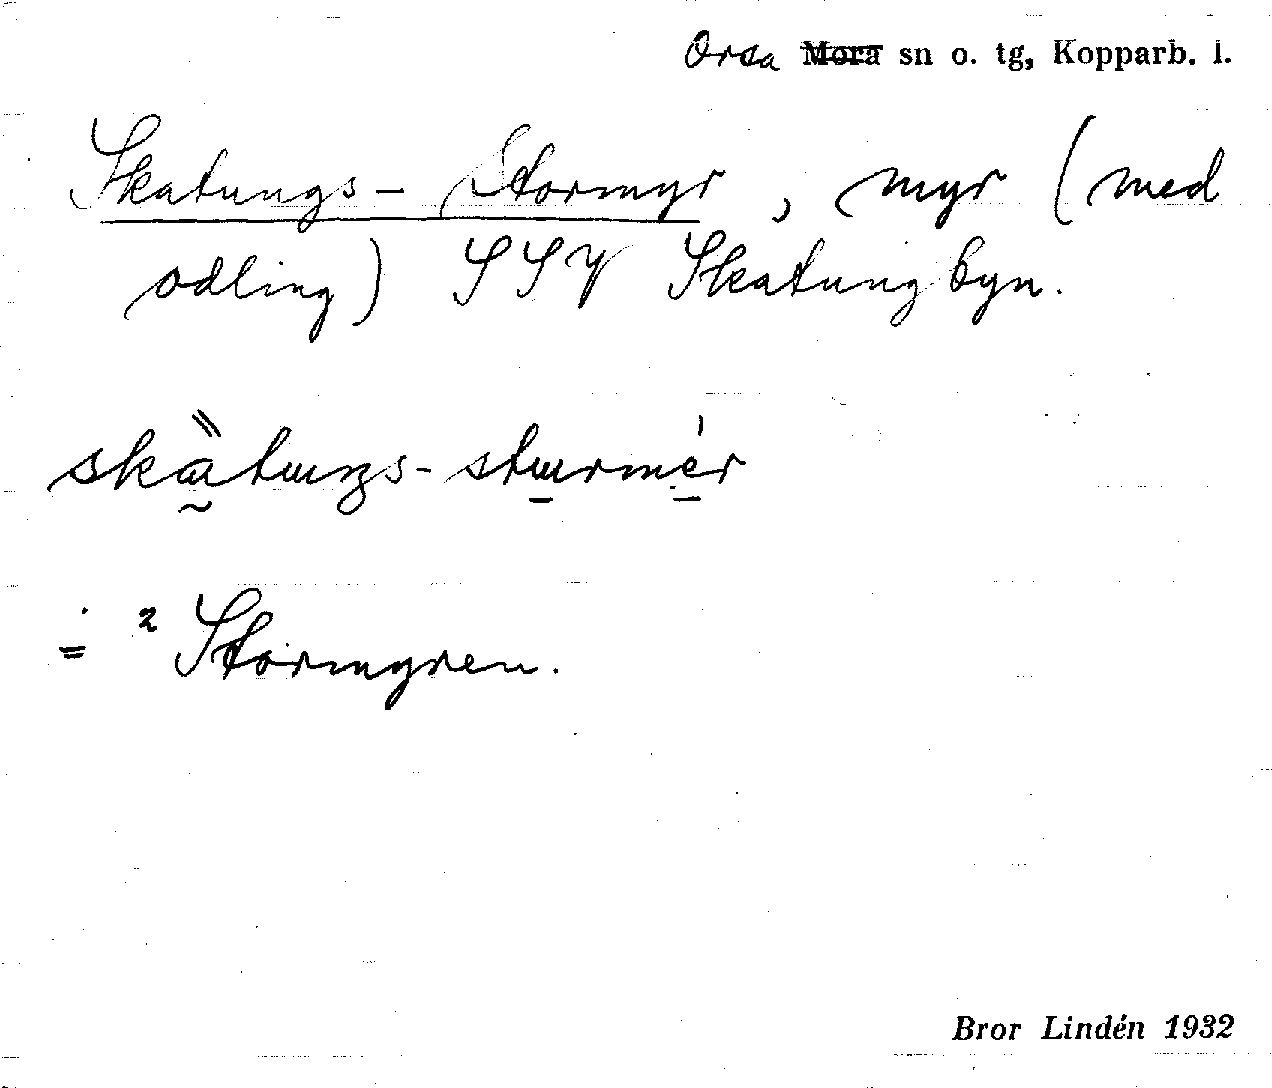 Orsa Mora sn o. tg, Kopparb. l.
Skatungs-Stormyr, myr (med
odling) SSV Skatungbyn.
skàtuŋs-sturmér
= ² Stormyren.
Bror Lindén 1932